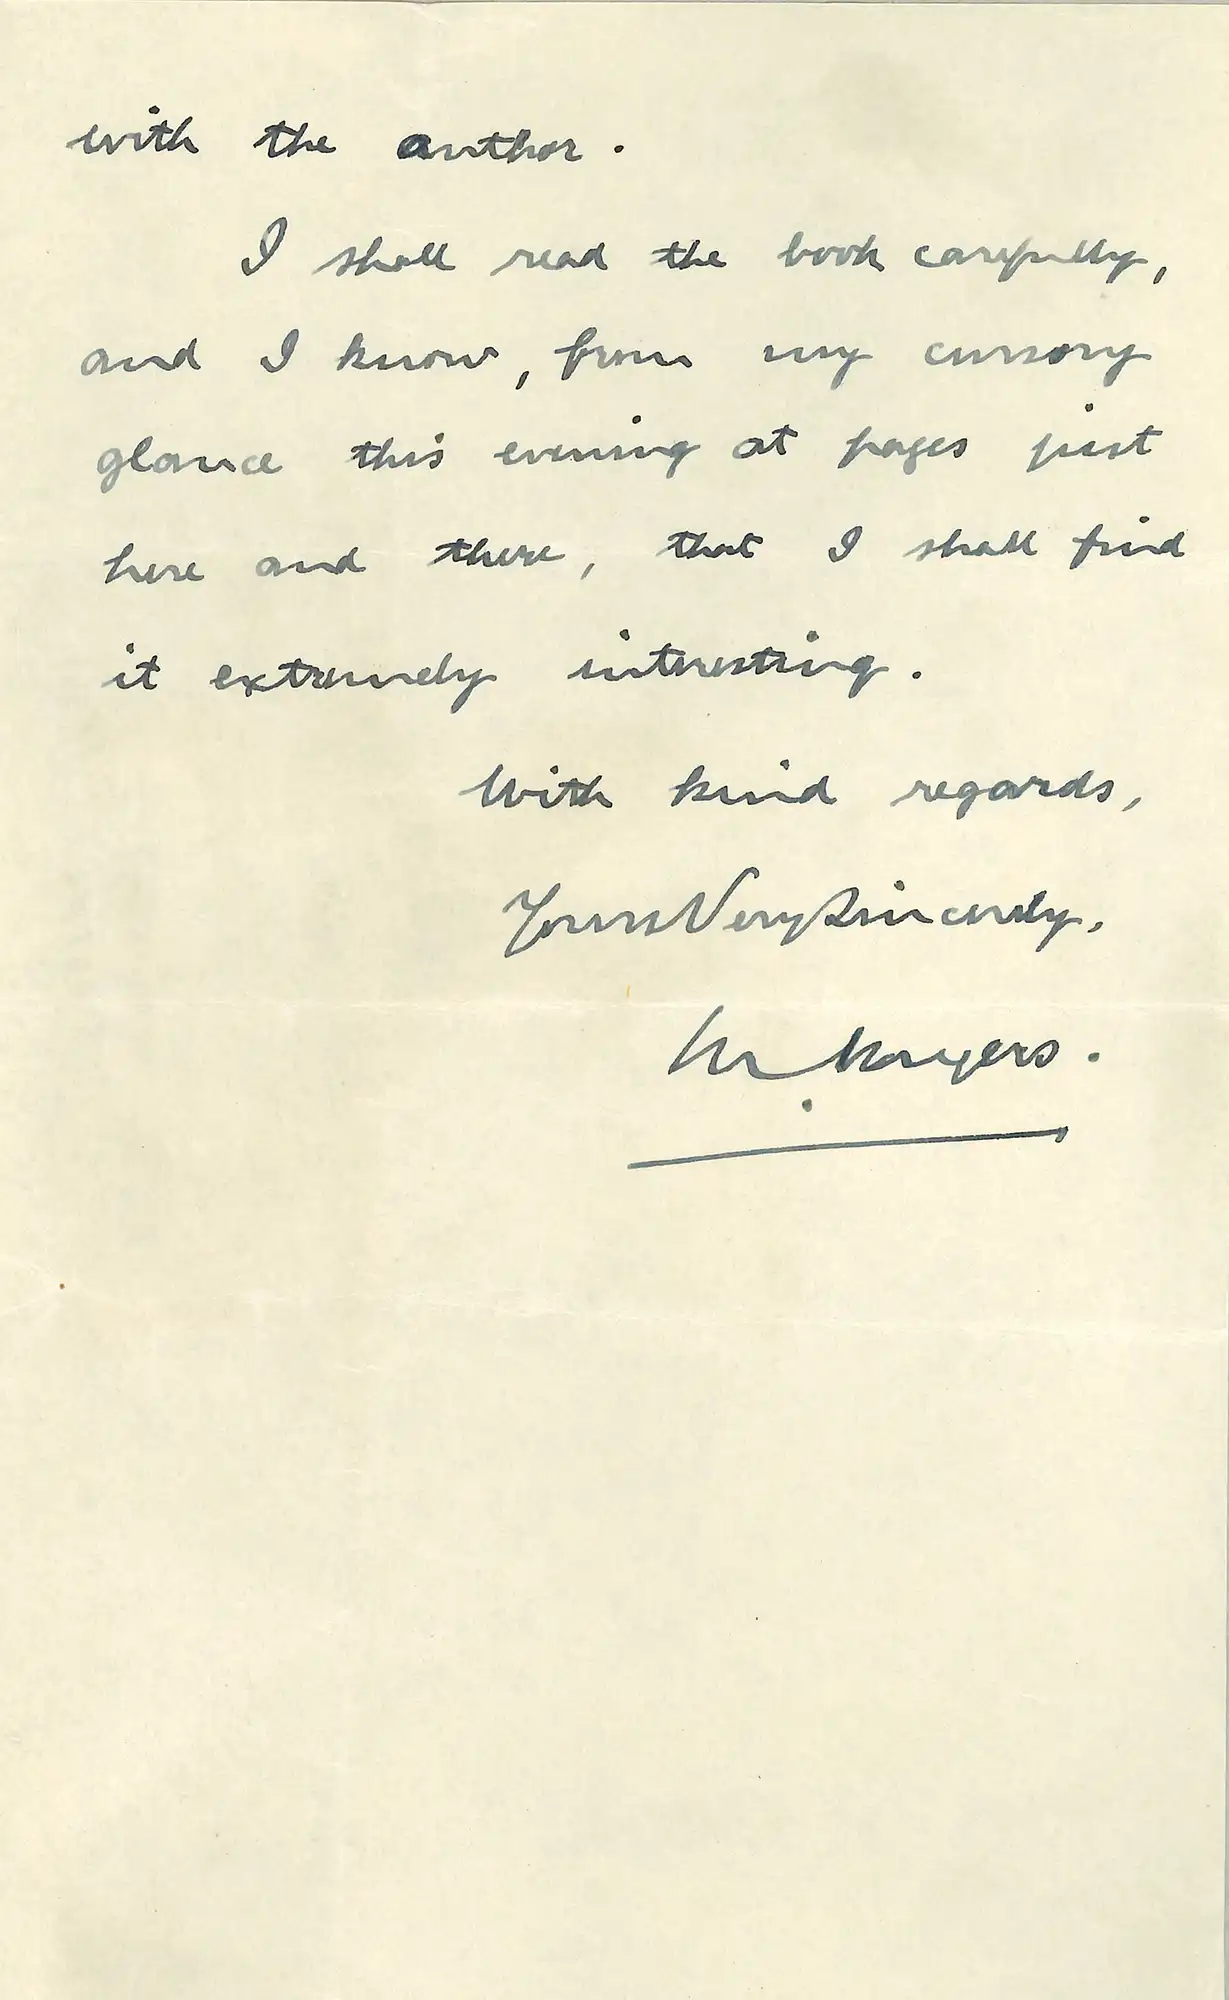 with the author.
I shall read the book carefully,
and I know, from my cursory
glance this evening at pages just
here and there, that I shall find
it extremely interesting.
With kind regards,
Yours Very Sincerely,